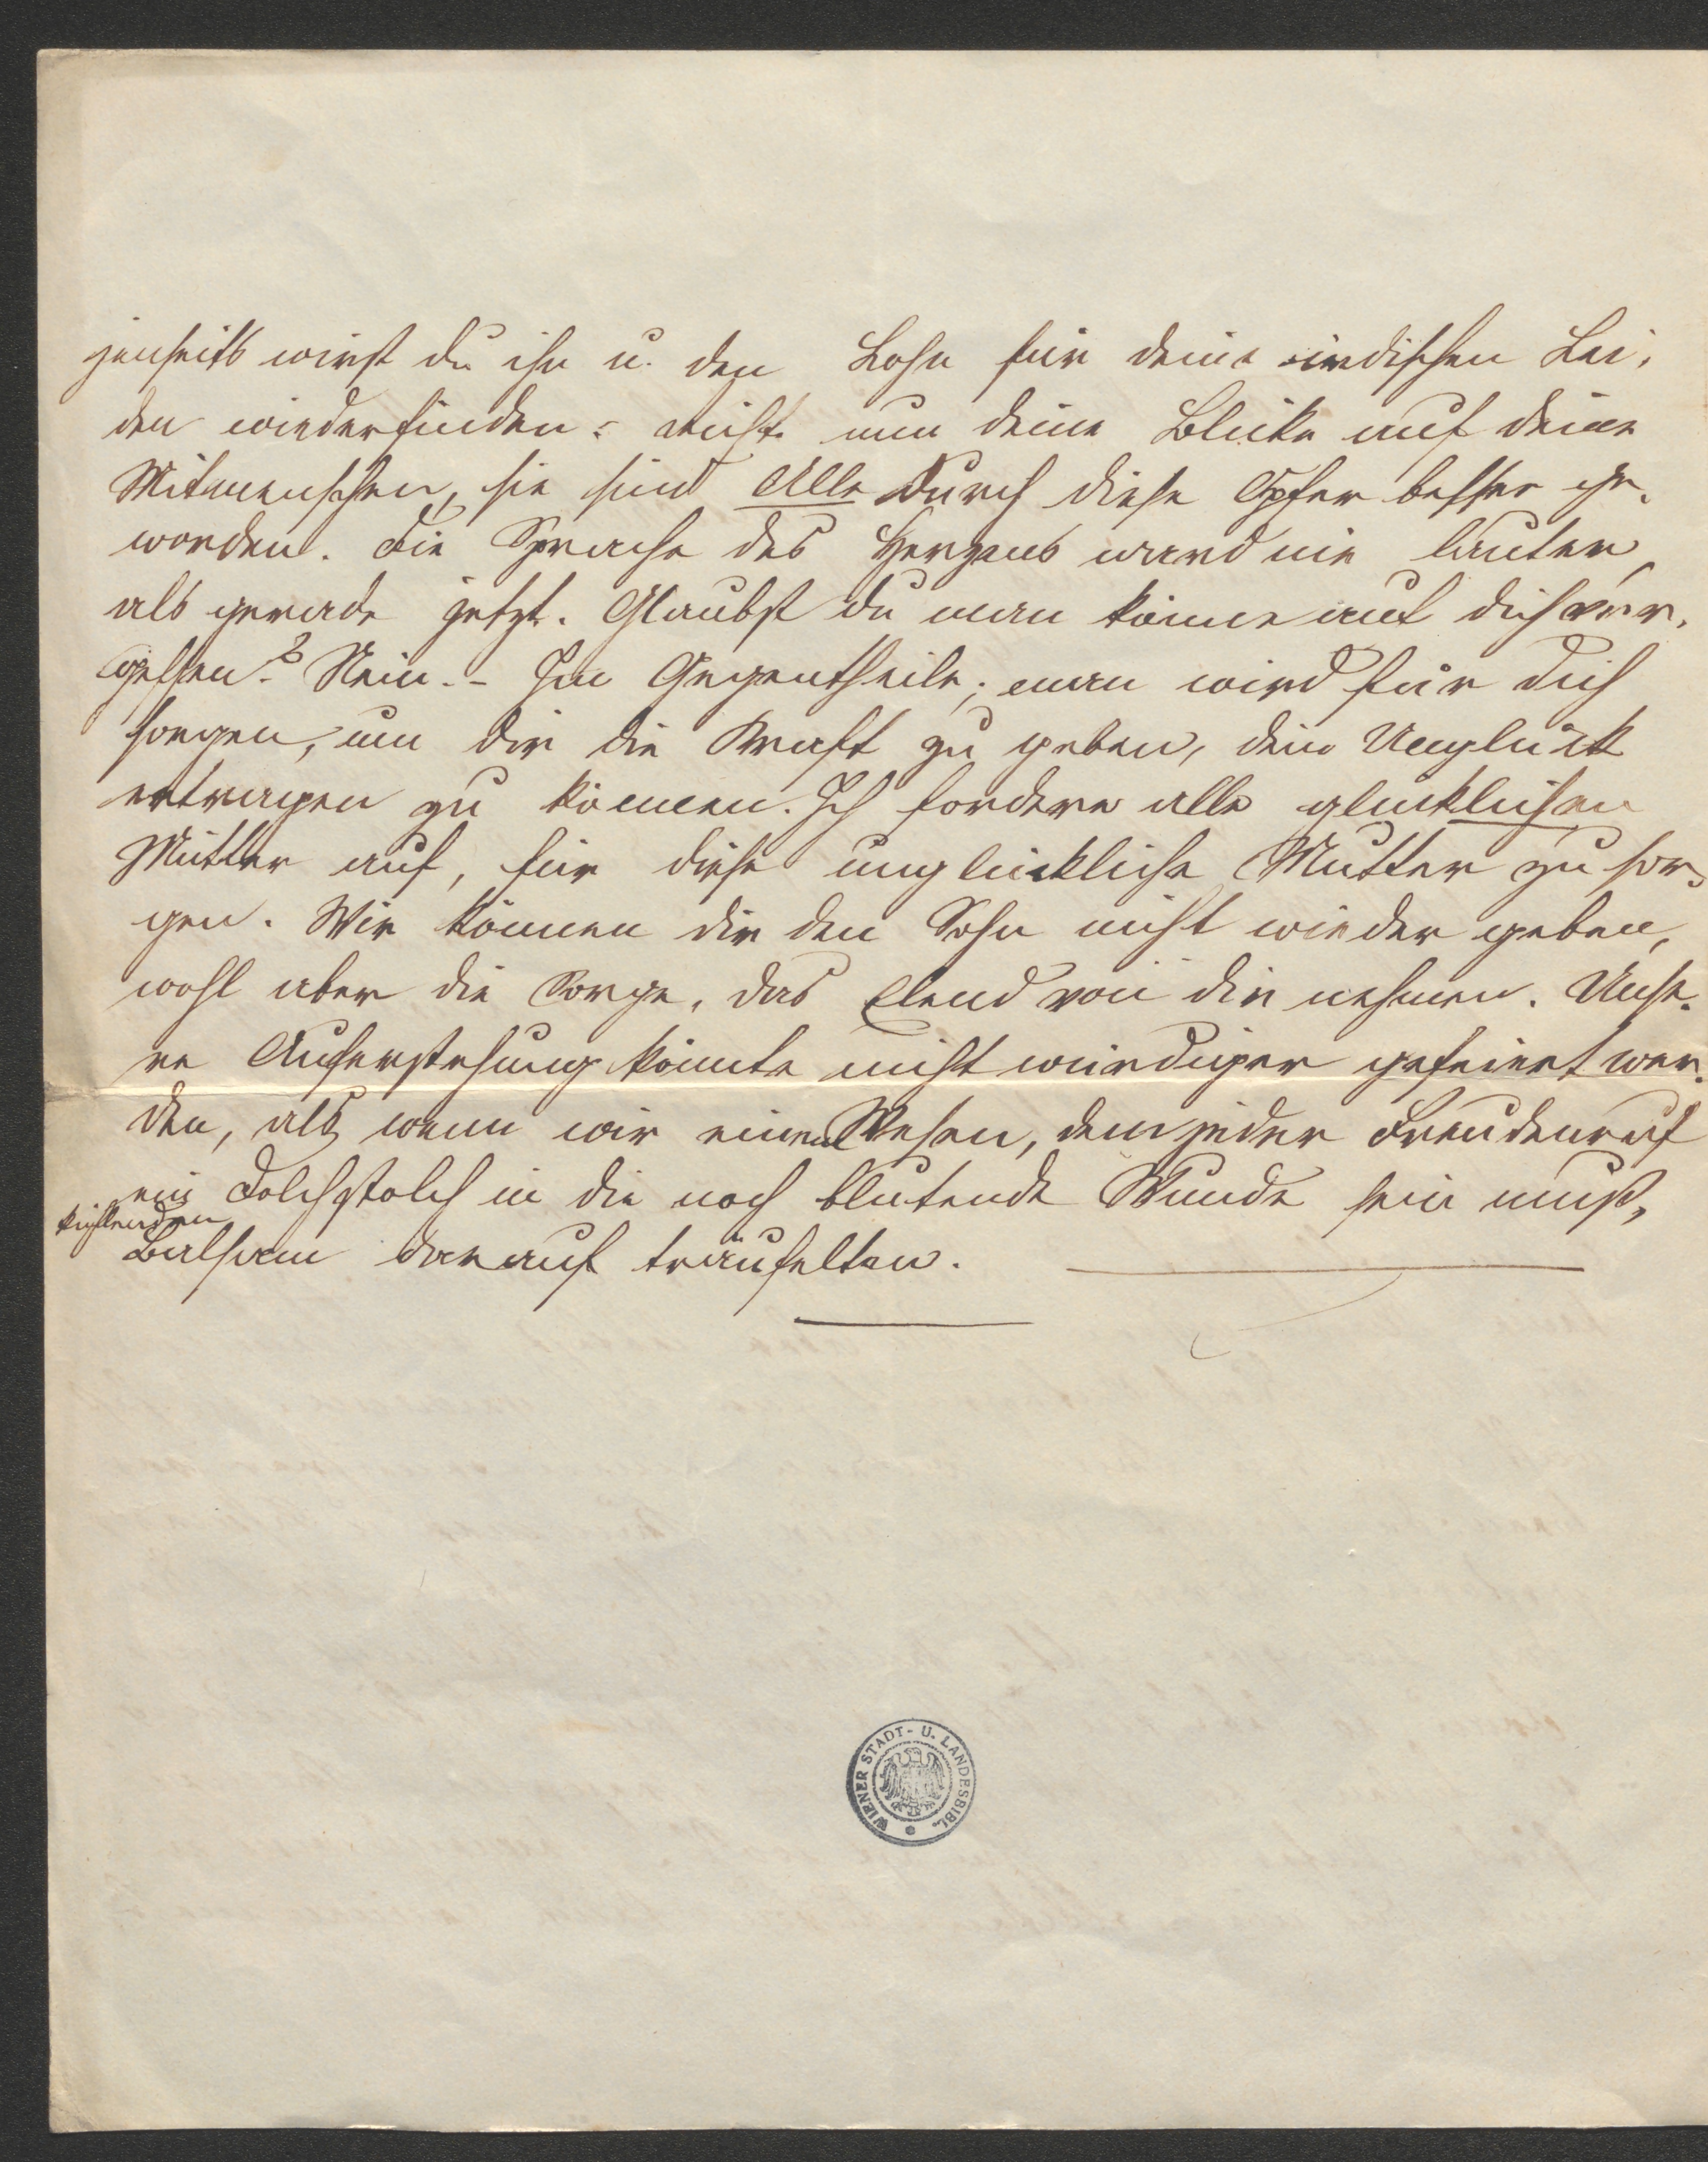 jenseits wirst du ihn u. den Lohn für deine irdischen Lei,
den wiederfinden: richte nun deine Blicke auf deine
Mitmenschen, sie sind Alle durch diese Opfer besser ge,
worden. Die Sprache des Herzens ward nie lauter,
als gerade jetzt. Glaubst du man könne auf dich ver,
gessen? Nein. – Im Gegentheile; man wird für dich
sorgen, um dir die Kraft zu geben, dein Unglück
ertragen zu können. Ich fordere alle glücklichen
Mütter auf, für diese unglückliche Mutter zu sor,
gen. Wir können dir den Sohn nicht wieder geben,
wohl aber die Sorge, das Elend von dir nehmen. Unse,
re Auferstehung könnte nicht würdiger gefeiert wer,
den, als wenn wir einem Wesen, dem jeder Freudenruf
ein Dolchstolch in die noch blutende Wunde sein muß,
kühlenden
Balsam darauf träufelten.
WIENER STADT- U. LANDESBIBL.